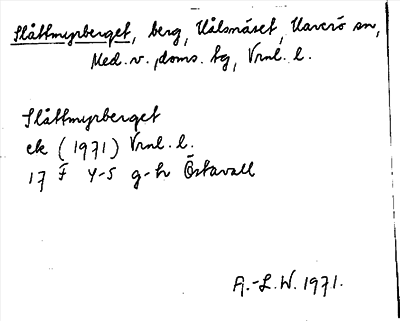 Slåttmyrberget, berg, Vålsmåset, Haverö sn,
Med. v. doms. tg, Vrnl. l.
Slåttmyrberget
ek (1971) Vrnl. l.
17 F 4-5 g-h Östavall
A.-L.W. 1971.